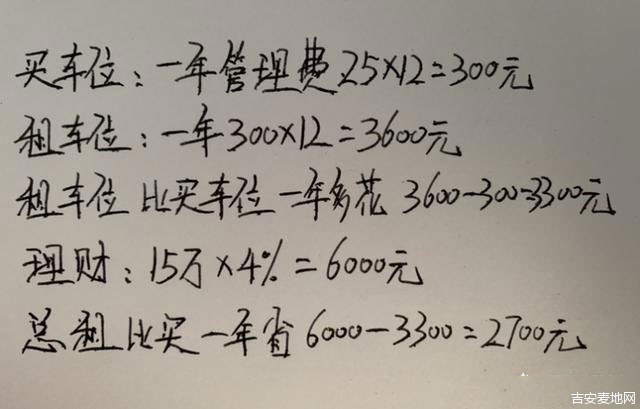 买车位：一年管理费25×12=300元
租车位：一年300×12=3600元
租车位比买车位一年多花 3600-300=3300元
理财：15万×4%=6000元
总租比买一年省6000-3300=2700元
吉安麦地网